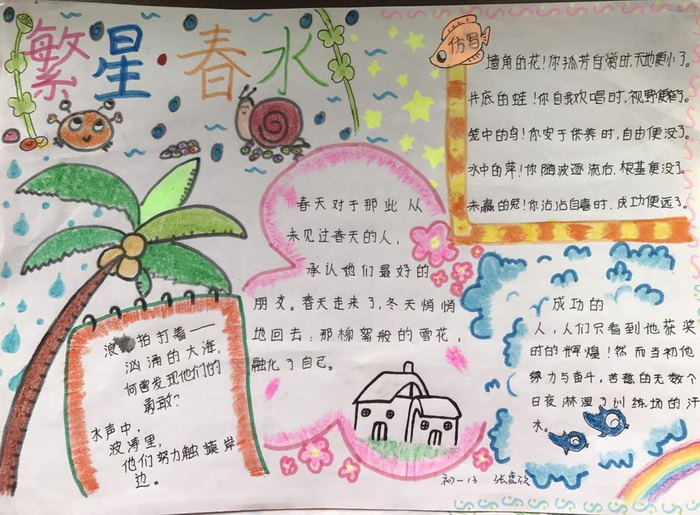 繁星·春水
仿写
墙角的花!你孤芳自赏时,天地便小了。
井底的蛙!你自我欢唱时,视野便窄了。
笼中的鸟!你安于供养时,自由便没了。
水中的萍!你随波逐流后,根基便没了。
未赢的兔!你沾沾自喜时,成功便远了。
春天对于那些从
未见过春天的人,
承认她们最好的
朋友。春天走来了,冬天悄悄
地回去;那柳絮般的雪花,
融化了自己。
浪 拍打着——
汹涌的大海,
何曾发现他们的
勇敢?
水声中,
波涛里,
他们努力触摸岸
边。
成功的
人,人们只看到他获奖
时的辉煌!然而当初他
努力与奋斗,苦练的无数个
日夜淋湿了训练场的汗
水。
初一13 张